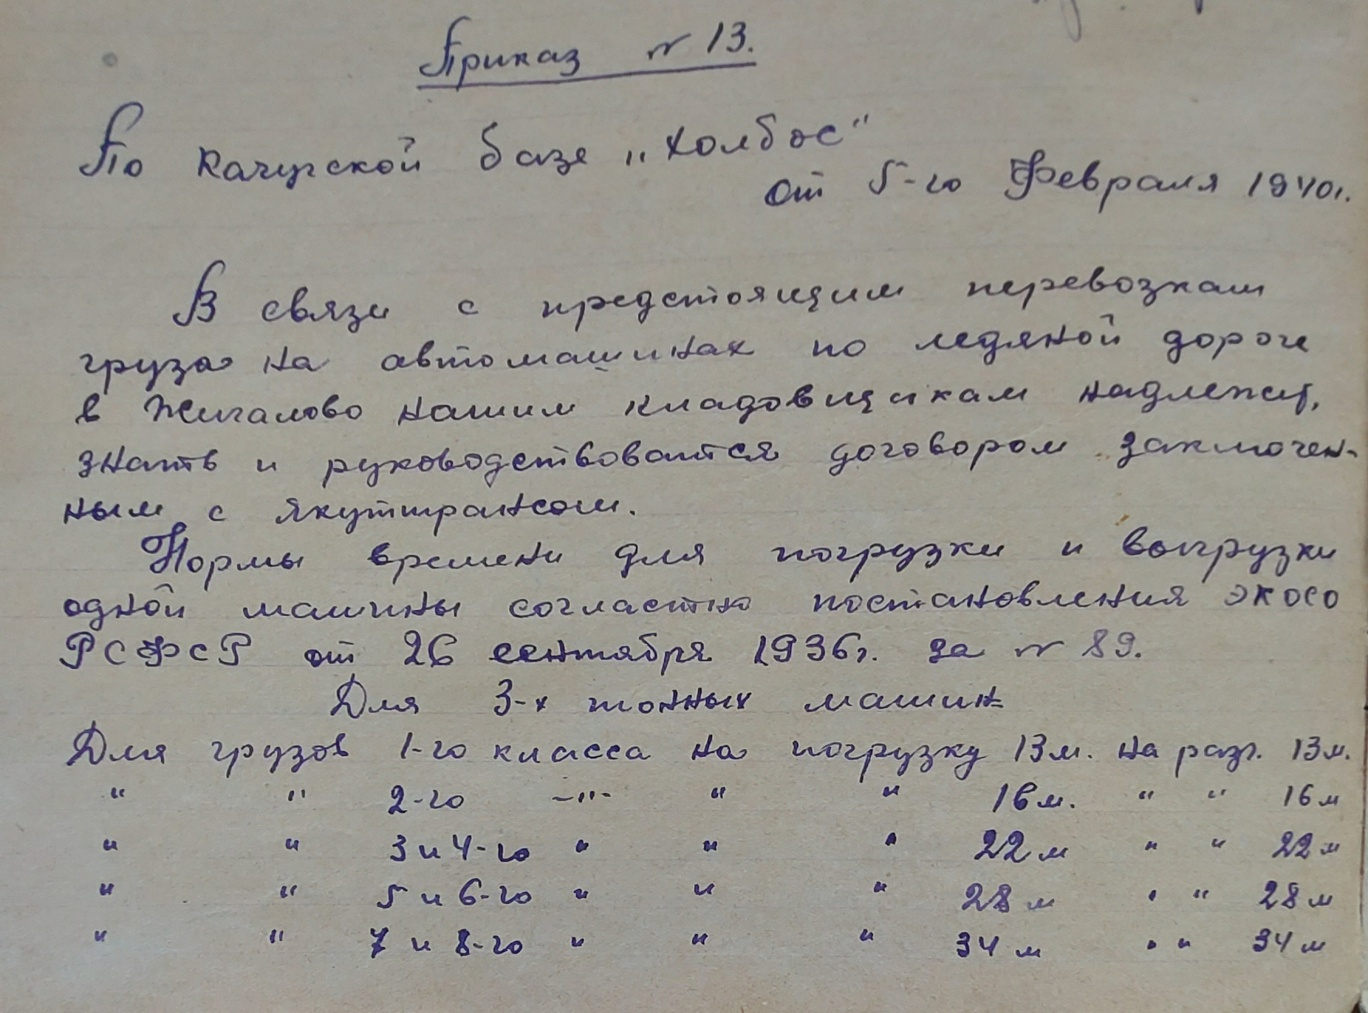 Приказ № 13.
По Качугской базе „Холбос“
от 5-го Февраля 1940г.
В связи с предстоящим перевозкам
груза на автомашинах по ледяной дороге
в Жигалово нашим кладовщикам надлежит,
знать и руководствоваться договором заключен-
ным с Якуттрансом.
Нормы времени для погрузки и выгрузки
одной машины согластно постановления экосо
РСФСР от 26 сентября 1936г. за № 89.
Для 3-х тонных машин
Для грузов 1-го класса на погрузку 13м. на разг. 13м.
" " 2-го -"- " " 16м. " " 16м
" " 3 и 4-го " " " 22м " " 22м
" " 5 и 6-го " " " 28м " " 28м
" " 7 и 8-го " " " 34м " " 34м